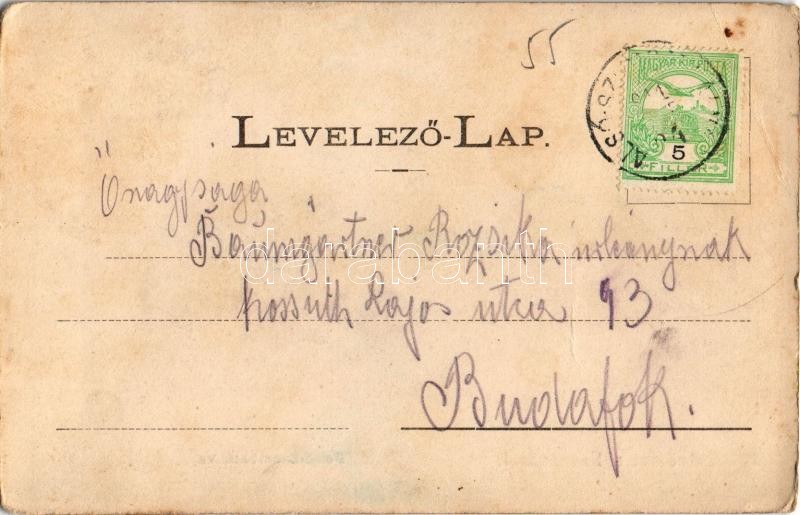 55
MAGYAR KIR. POSTA
5
FILLÉR
LEVELEZŐ-LAP.
Őnagysága
Baumgartner Rozsika urleánynak
Kossuth Lajos utca 93
Budafok.
darabanth